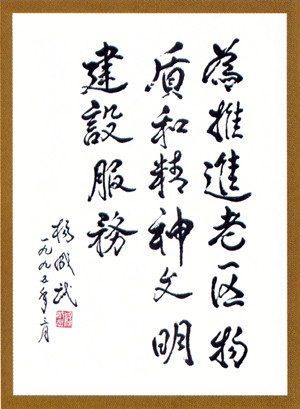 為推進老区物
质和精神文明
建設服務
楊成武
一九九五年三月